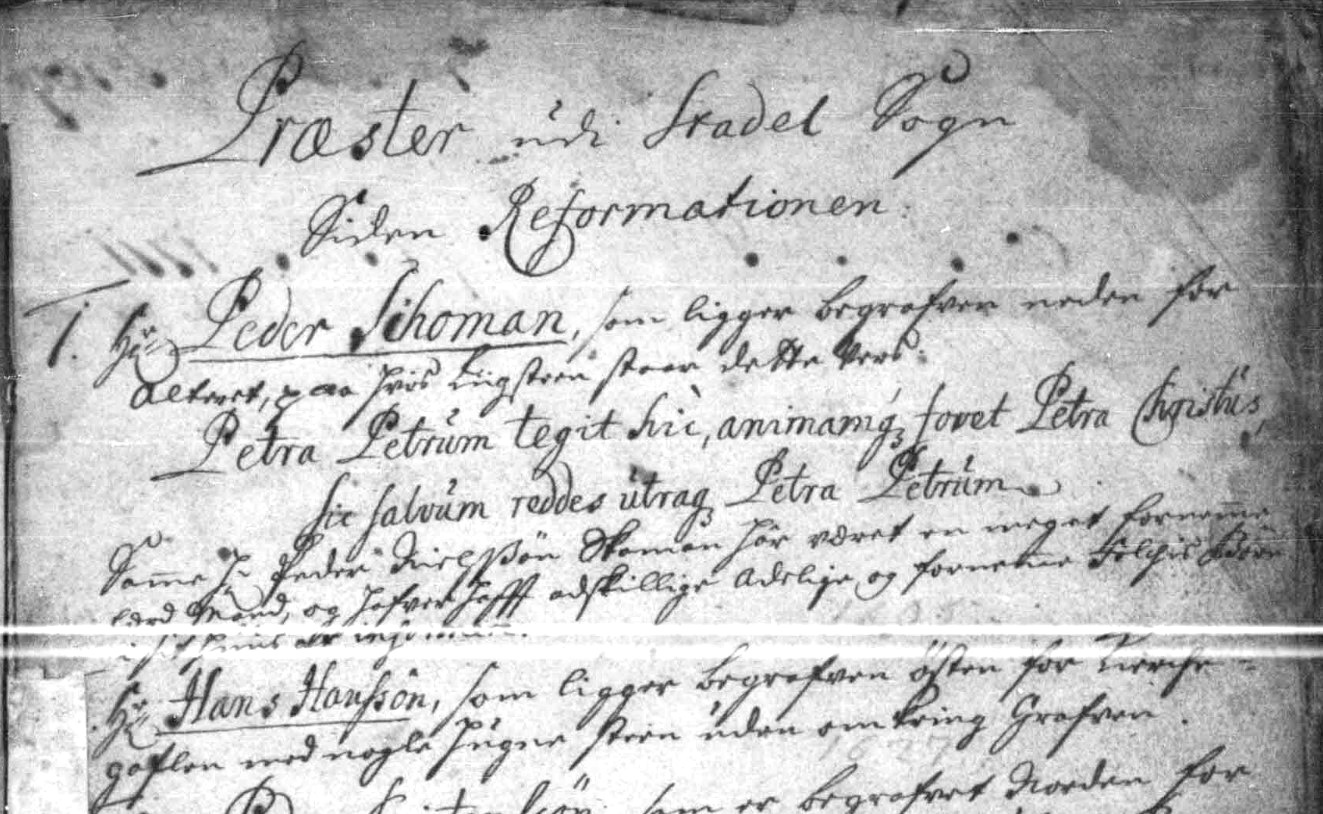 Præster udi Skadel Sogn
Siden Reformationen.
1. Hr: Peder Schoman, som ligger begrafven neden for
Alteret, paa hvis Liigsteen staar dette Vers:
Petra Petrum tegit hic, animamq; fovet Petra Christus,
sic salvum reddes utraq; Petra Petrum
Samme H. Peder Nielssøn Skoman har været en meget fornemme
lærd Mand, og hafver hafft adskillige Adelige og fornemme Folchis Børn
i sit Huus at
Hr: Hans Hanssøn, som ligger begrafven østen for Kirche-
gaflen med nogle hugne steen uden omkring Grafven.
som er begrafvet Norden for